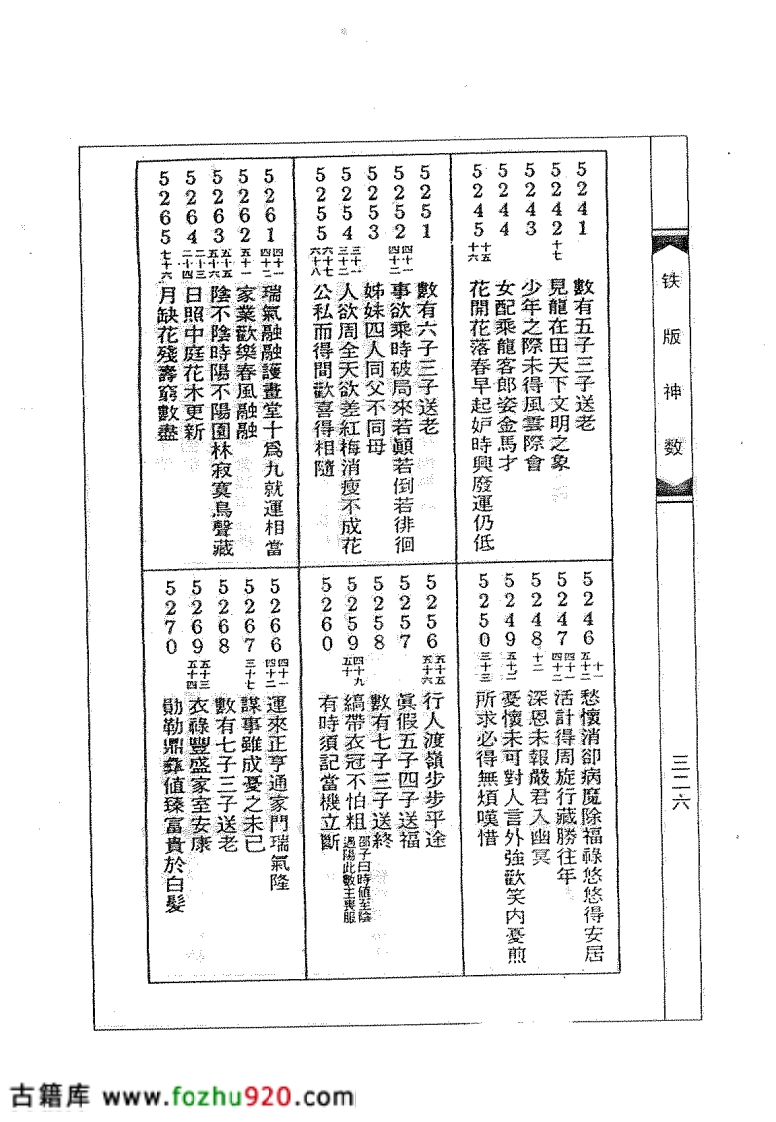 铁版神数
三二六
5241 數有五子三子送老
5242 十七 見龍在田天下文明之象
5243 少年之際未得風雲際會
5244 女配乘龍客郎姿金馬才
5245 十五 十六 花開花落春早起妒時興廢運仍低
5246 十一 五十二 愁懷消卻病魔除福祿悠悠得安居
5247 四十一 四十二 活計得周旋行藏勝往年
5248 十二 深恩未報嚴君入幽冥
5249 五十二 憂懷未可對人言外強歡笑内憂煎
5250 三十三 所求必得無煩嘆惜
5251 數有六子三子送老
5252 四十一 四十二 事欲乘時破局來若顚若倒若徘徊
5253 姊妹四人同父不同母
5254 三十一 三十二 人欲周全天欲差紅梅消瘦不成花
5255 六十七 六十八 公私而得間歡喜得相隨
5256 五十五 五十六 行人渡嶺步步平途
5257 眞假五子四子送福
5258 數有七子三子送終
5259 四十九 五十 縞帶衣冠不怕粗 邵子曰時值至陰遇陽此數主喪服
5260 有時須記當機立斷
5261 四十一 四十二 瑞氣融融護畫堂十爲九就運相當
5262 五十一 家業歡樂春風融融
5263 五十五 五十六 陰不陰時陽不陽園林寂寞鳥聲藏
5264 二十三 二十四 日照中庭花木更新
5265 七十六 月缺花殘壽窮數盡
5266 四十一 四十二 運來正亨通家門瑞氣隆
5267 三十七 謀事雖成憂之未已
5268 數有七子三子送老
5269 五十三 五十四 衣祿豐盛家室安康
5270 勛勒鼎彝值臻富貴於白髮
古籍库 www.fozhu920.com